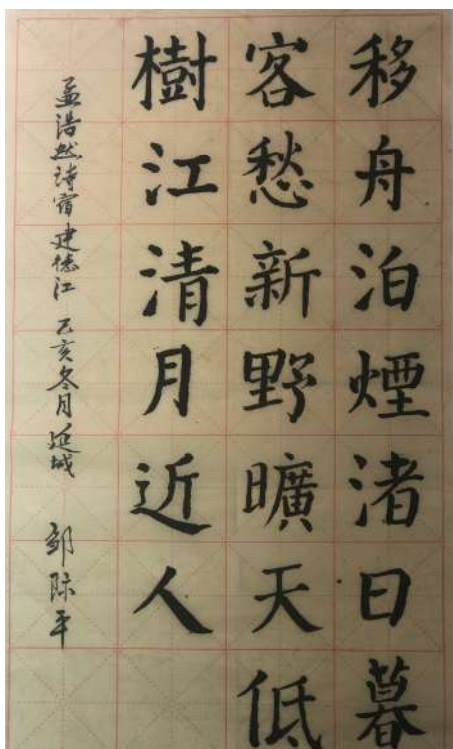 移舟泊煙渚日暮
客愁新野曠天低
樹江清月近人
孟浩然詩宿建德江 乙亥冬月延城 邹际平